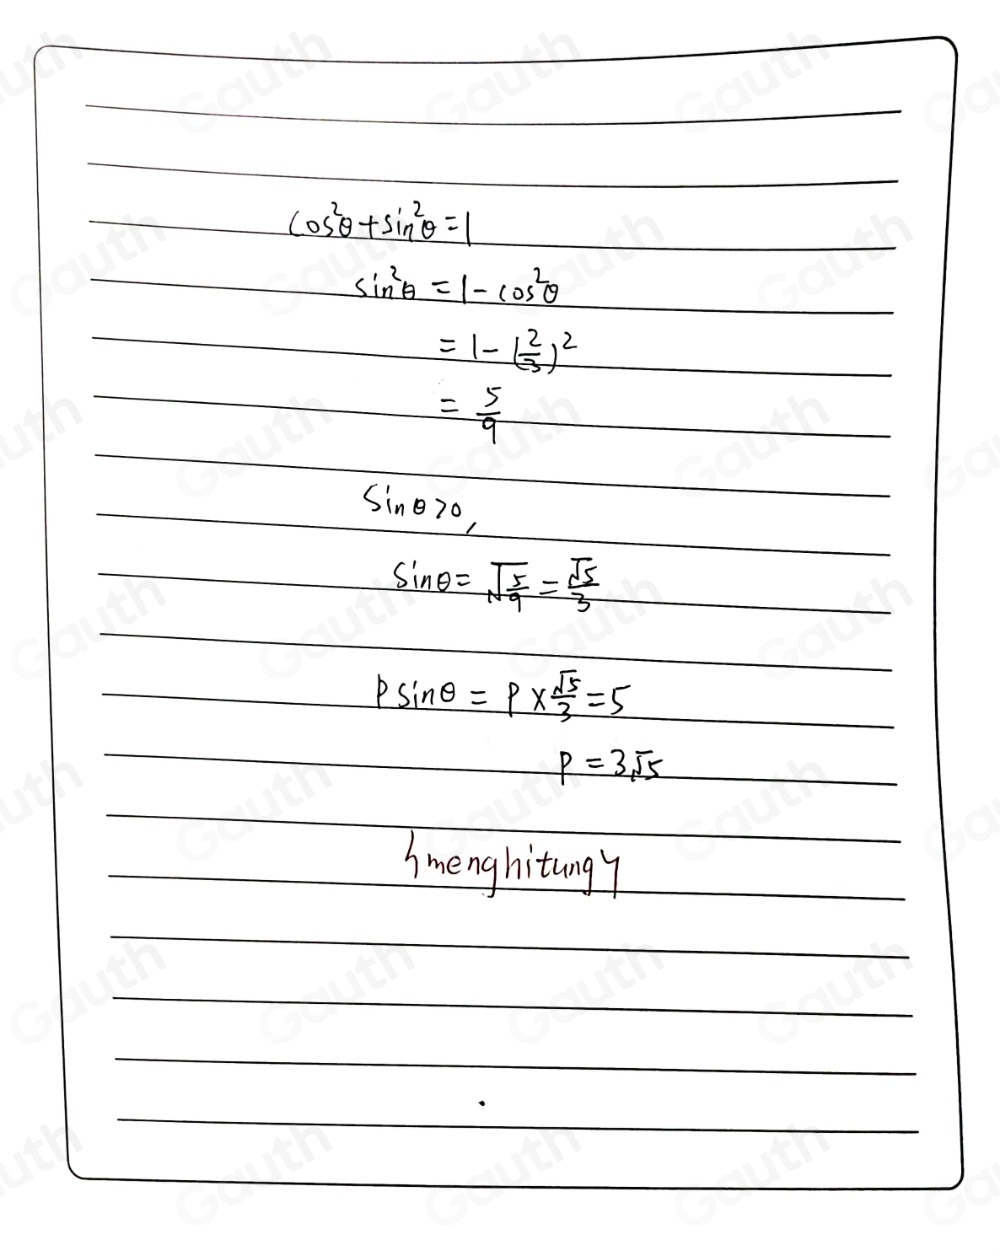 cos²θ+sin²θ=1
sin²θ=1-cos²θ
=1-(2/3)²
=5/9
sinθ>0,
sinθ=√(5/9)=√5/3
psinθ=p×√5/3=5
p=3√5
menghitung
Gauth